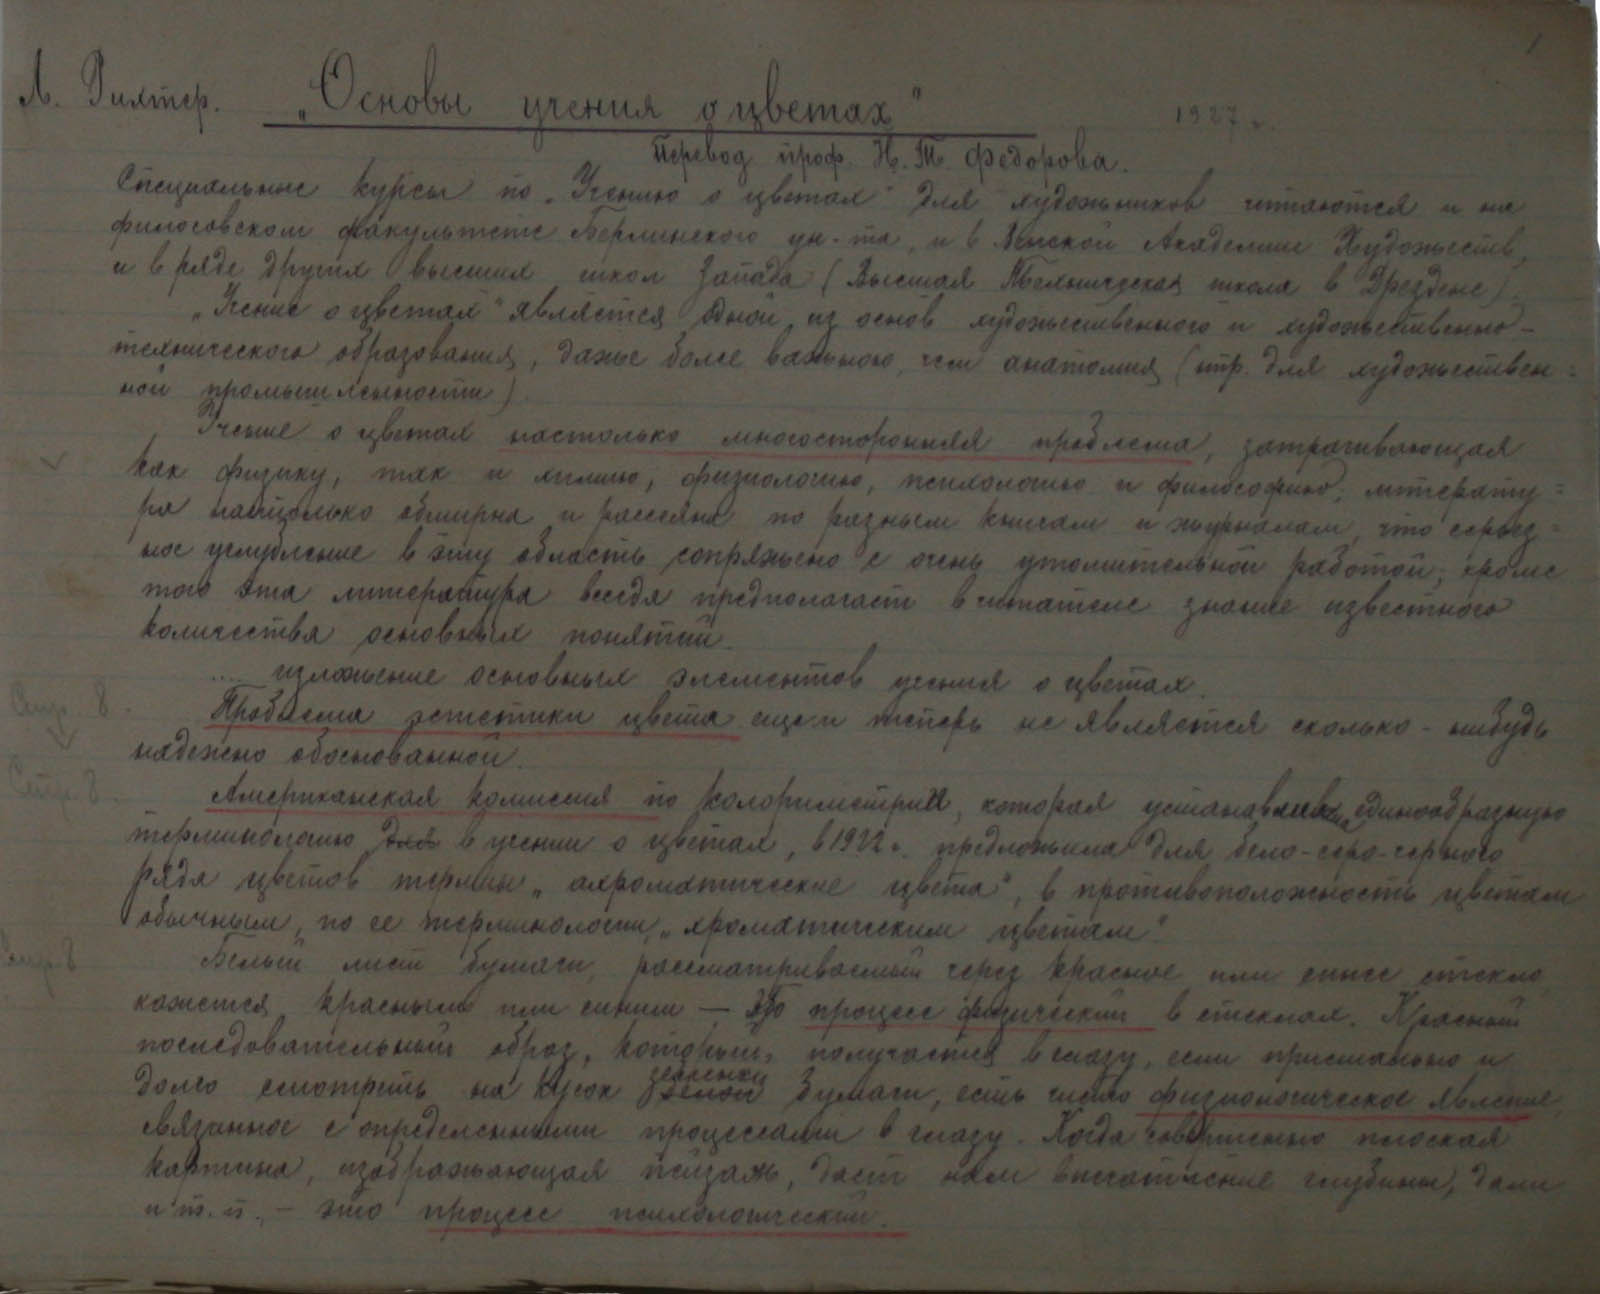 1
Л. Рихтер. „Основы учения о цветах" 1927 г.
Перевод проф. Н. Т. Федорова.
Специальные курсы по „Учению о цветах" для художников читаются и на
философском факультете Берлинского ун-та, и в Венской Академии Художеств,
и в ряде других высших школ Запада (Высшая Техническая школа в Дрездене).
„Учение о цветах" является одной из основ художественного и художественно-
технического образования, даже более важною, чем анатомия (нпр. для художествен=
ной промышленности).
Учение о цветах настолько многосторонняя проблема, затрагивающая
как физику, так и химию, физиологию, психологию и философию; литерату=
ра настолько обширна и рассеяна по разным книгам и журналам, что серьез=
ное углубление в эту область сопряжено с очень утомительной работой; кроме
того эта литература всегда предполагает в читателе знание известного
количества основных понятий.
.... изложение основных элементов учения о цветах.
Стр. 8. Проблема эстетики цвета еще и теперь не является сколько-нибудь
надежно обоснованной.
Стр. 8. Американская комиссия по колориметрии, которая устанавливала единообразную
терминологию для в учении о цветах, в 1922 г. предложила для бело-серо-черного
ряда цветов термин „ахроматические цвета", в противоположность цветам
обычным, по ее терминологии, „хроматическим цветам".
Стр. 8 Белый лист бумаги, рассматриваемый через красное или синее стекло
кажется красным или синим — это процесс физический в стеклах. Красный
последовательный образ, который получается в глазу, если пристально и
долго смотреть на кусок зеленой бумаги, есть чисто физиологическое явление,
связанное с определенными процессами в глазу. Когда совершенно плоская
картина, изображающая пейзаж, дает нам впечатление глубины, дали
и т. п., — это процесс психологический.